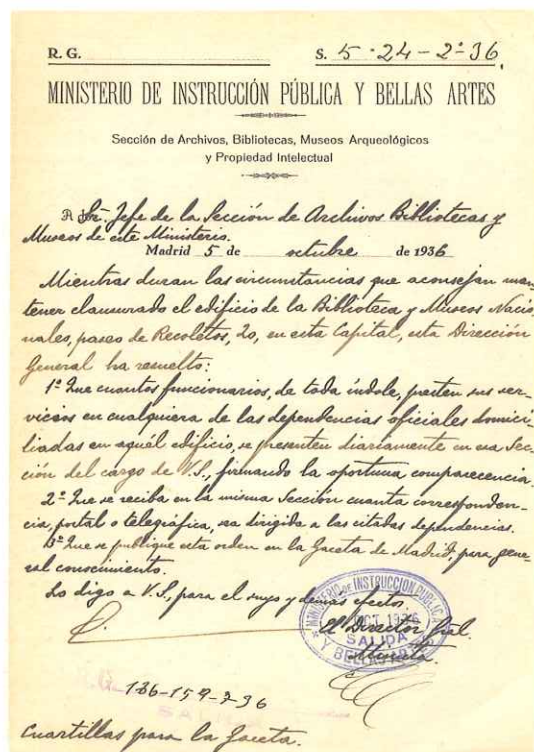 R. G. S. 5-24-2º-36,
MINISTERIO DE INSTRUCCIÓN PÚBLICA Y BELLAS ARTES
Sección de Archivos, Bibliotecas, Museos Arqueológicos
y Propiedad Intelectual
A Sr. Jefe de la Sección de Archivos Bibliotecas y
Museos de este Ministerio.
Madrid 5 de octubre de 1936
Mientras duran las circunstancias que aconsejan man-
tener clausurado el edificio de la Biblioteca y Museos Nacio-
nales, paseo de Recoletos, 20, en esta Capital, esta Dirección
General ha resuelto:
1º Que cuantos funcionarios, de toda índole, presten sus ser-
vicios en cualquiera de las dependencias oficiales domici-
liadas en aquél edificio, se presenten diariamente en esa Sec-
ción del cargo de V.S., firmando la oportuna comparecencia.
2º Que se reciba en la misma Sección cuanta corresponden-
cia, postal o telegráfica, sea dirigida a las citadas dependencias.
3º Que se publique esta orden en la Gaceta de Madrid, para gene-
ral conocimiento.
Lo digo a V.S., para el suyo y demás efectos.
MINISTERIO DE INSTRUCCION PUBLICA
OCT. 1936
SALIDA
Y BELLAS ARTES
El Director Gral.
Minuta.
R.G. 136-159-7-36
Cuartillas para la Gaceta.